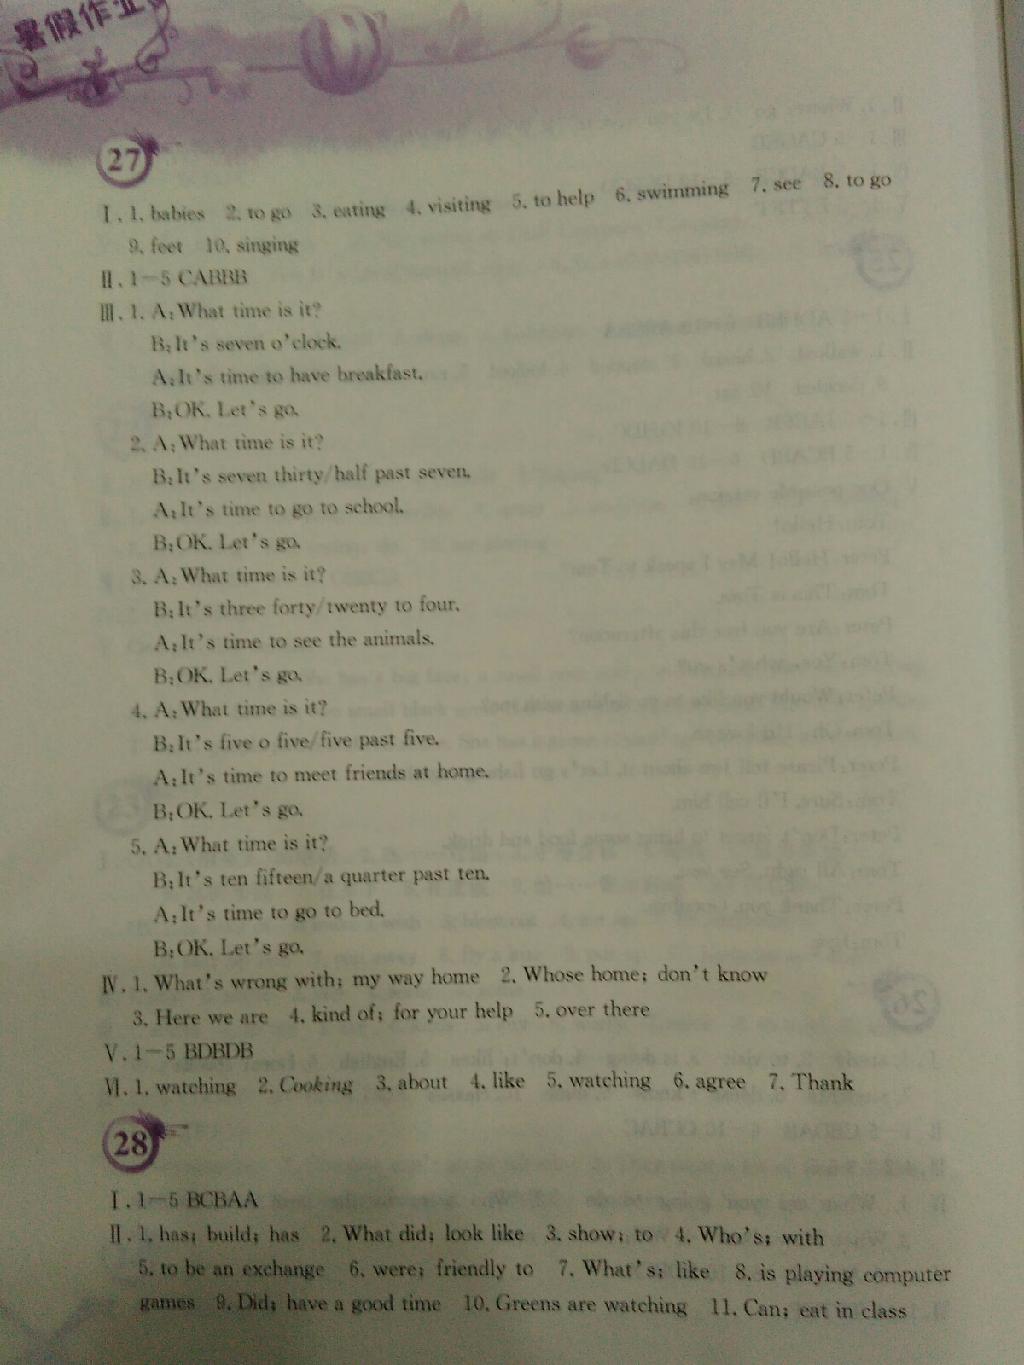 暑假作业
27
Ⅰ. 1. babies 2. to go 3. eating 4. visiting 5. to help 6. swimming 7. see 8. to go
9. feet 10. singing
Ⅱ. 1—5 CABBB
Ⅲ. 1. A: What time is it?
B: It's seven o'clock.
A: It's time to have breakfast.
B: OK. Let's go.
2. A: What time is it?
B: It's seven thirty/half past seven.
A: It's time to go to school.
B: OK. Let's go.
3. A: What time is it?
B: It's three forty/twenty to four.
A: It's time to see the animals.
B: OK. Let's go.
4. A: What time is it?
B: It's five o five/five past five.
A: It's time to meet friends at home.
B: OK. Let's go.
5. A: What time is it?
B: It's ten fifteen/a quarter past ten.
A: It's time to go to bed.
B: OK. Let's go.
Ⅳ. 1. What's wrong with; my way home 2. Whose home; don't know
3. Here we are 4. kind of; for your help 5. over there
Ⅴ. 1—5 BDBDB
Ⅵ. 1. watching 2. Cooking 3. about 4. like 5. watching 6. agree 7. Thank
28
Ⅰ. 1—5 BCBAA
Ⅱ. 1. has; build; has 2. What did; look like 3. show; to 4. Who's; with
5. to be an exchange 6. were; friendly to 7. What's; like 8. is playing computer
games 9. Did; have a good time 10. Greens are watching 11. Can; eat in class